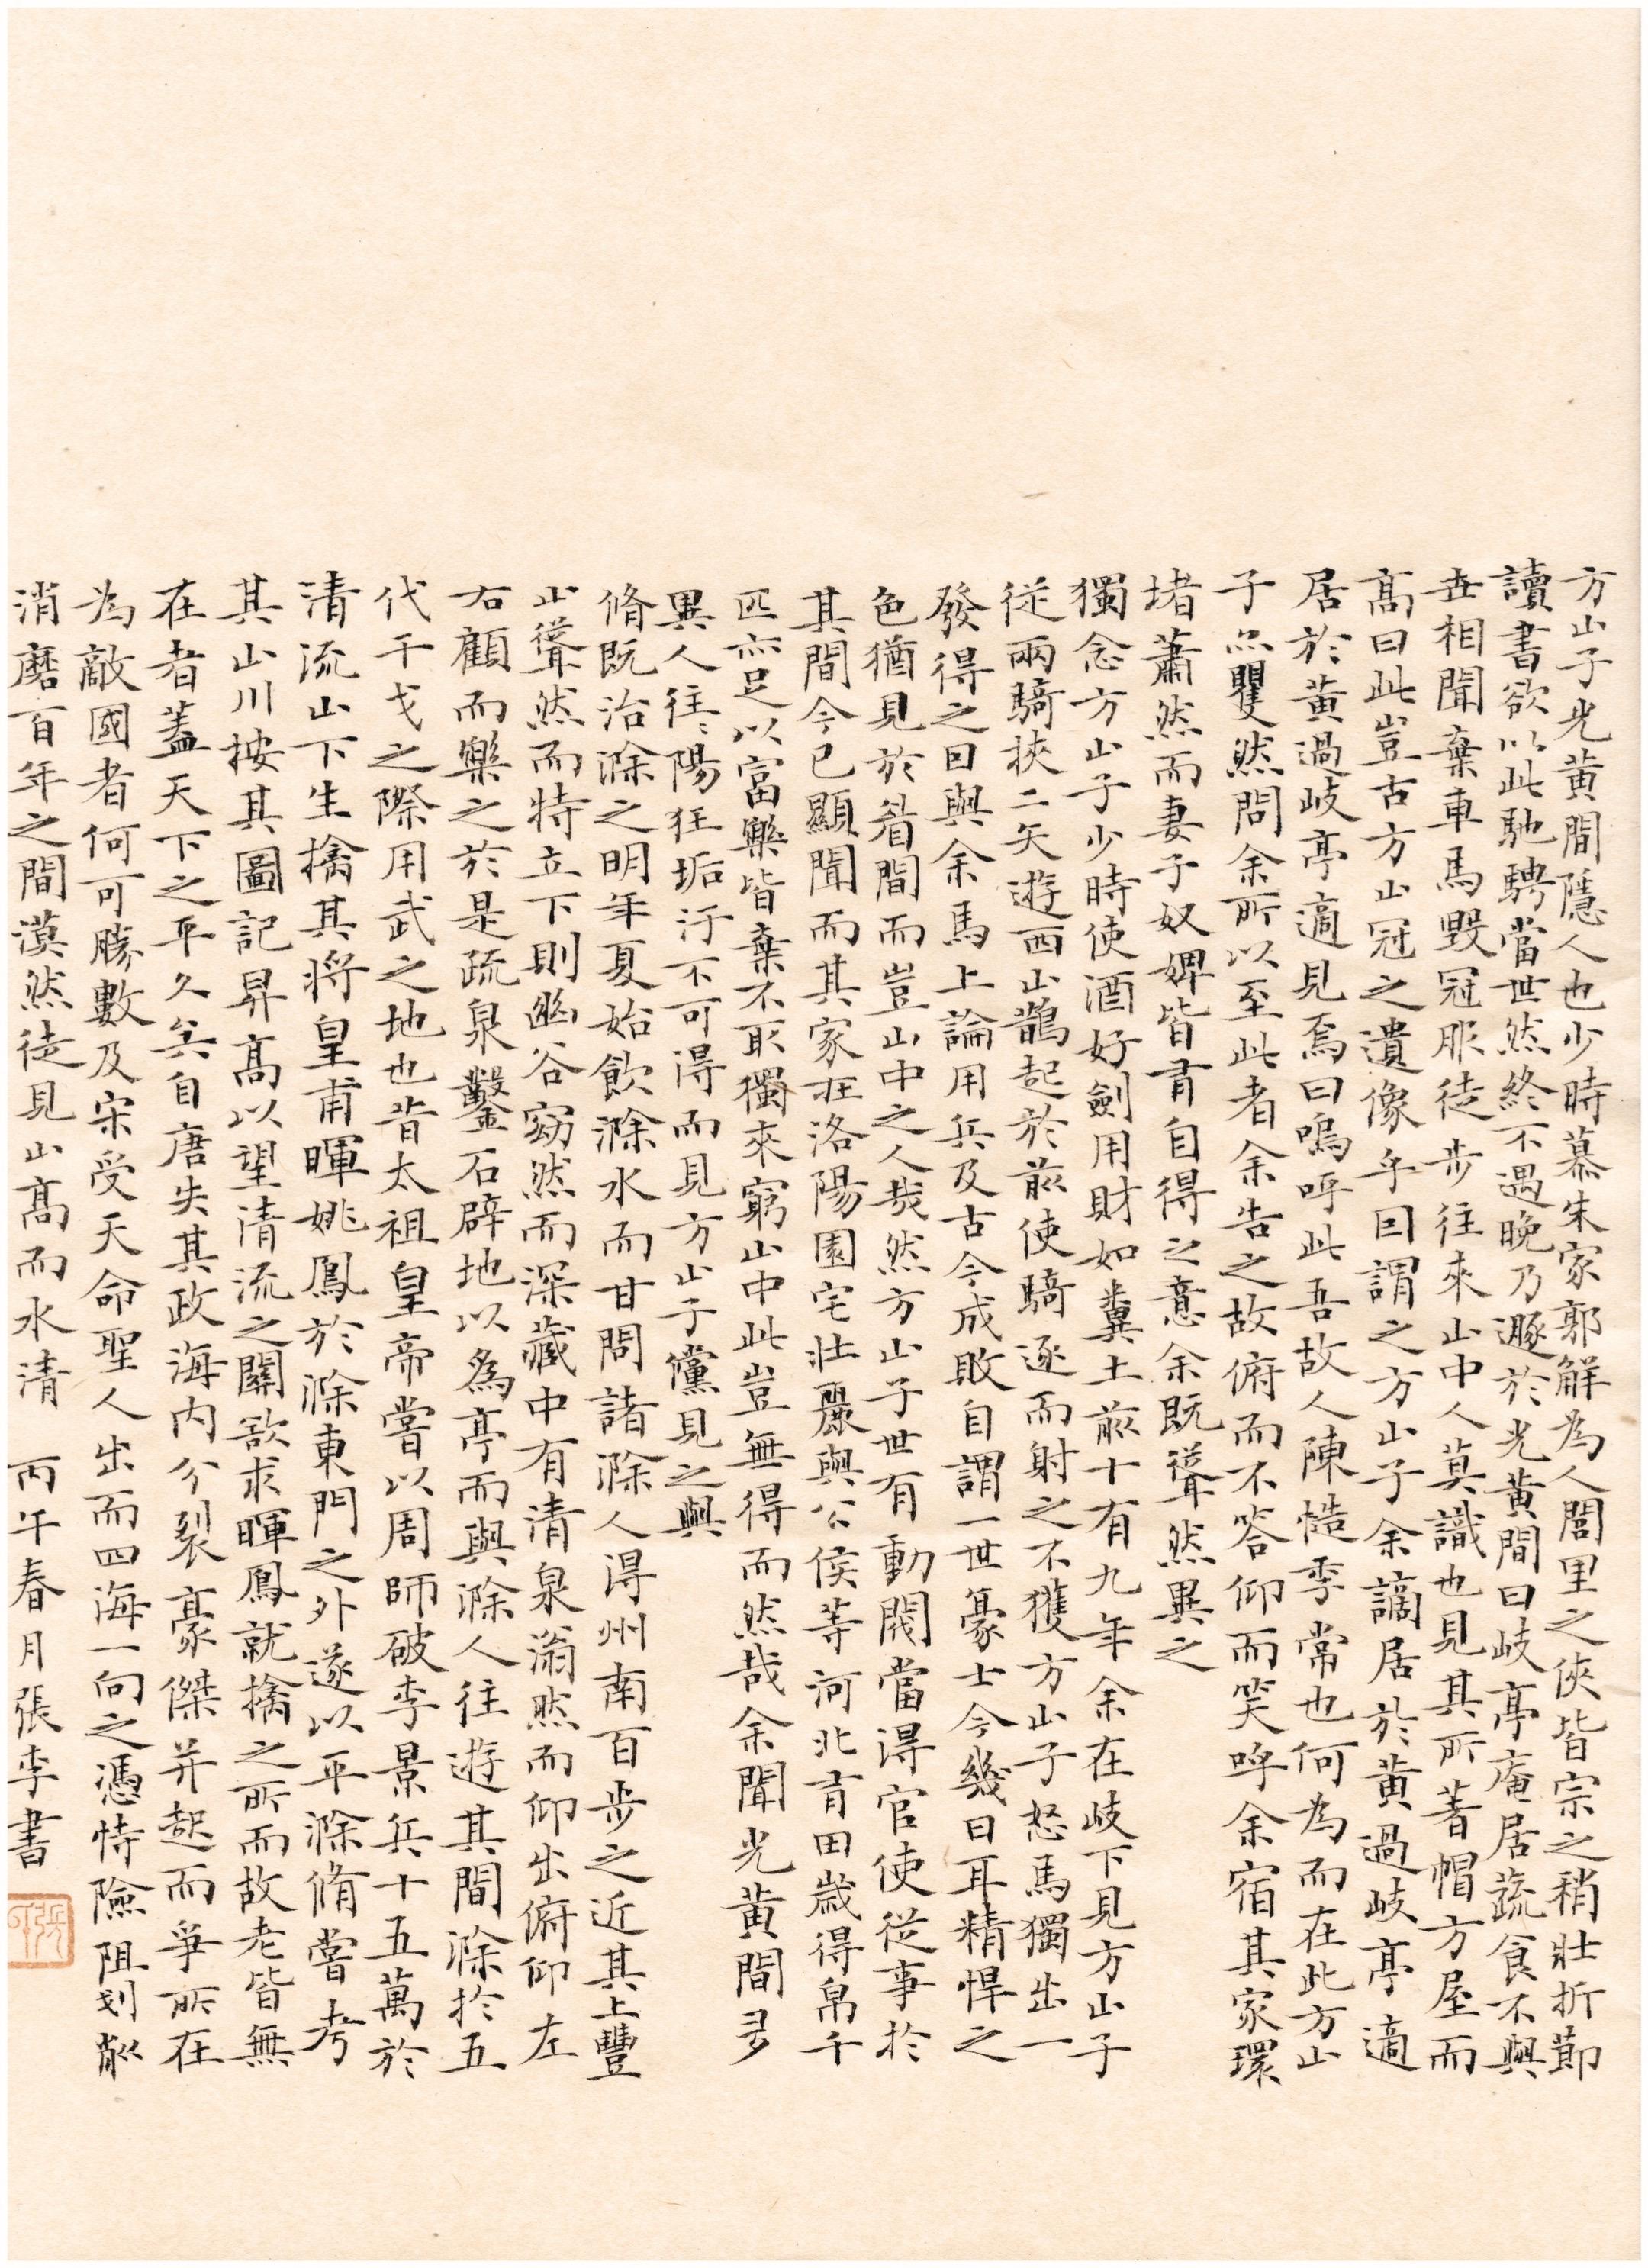 方山子光黄間隱人也少時慕朱家郭解為人閭里之俠皆宗之稍壯折節
讀書欲以此馳騁當世然終不遇晚乃遯於光黄間曰岐亭庵居蔬食不與
世相聞棄車馬毀冠服徒步往來山中人莫識也見其所著帽方屋而
高曰此豈古方山冠之遺像乎因謂之方山子余謫居於黄過岐亭適
居於黄過岐亭適見焉曰嗚呼此吾故人陳慥季常也何為而在此方山
子亦矍然問余所以至此者余告之故俯而不答仰而笑呼余宿其家環
堵蕭然而妻子奴婢皆有自得之意余既聳然異之
獨念方山子少時使酒好劍用財如糞土前十有九年余在岐下見方山子
從兩騎挾二矢遊西山鵲起於前使騎逐而射之不獲方山子怒馬獨出一
發得之因與余馬上論用兵及古今成敗自謂一世豪士今幾日耳精悍之
色猶見於眉間而豈山中之人哉然方山子世有動閥當得官使從事於
其間今已顯聞而其家在洛陽園宅壯麗與公侯等河北有田歲得帛千
匹亦足以富樂皆棄不取獨來窮山中此豈無得而然哉余聞光黄間多
異人往〻陽狂垢汙不可得而見方山子儻見之與
脩既治滁之明年夏始飲滁水而甘問諸滁人得州南百步之近其上豐
山聳然而特立下則幽谷窈然而深藏中有清泉滃然而仰出俯仰左
右顧而樂之於是疏泉鑿石辟地以為亭而與滁人往遊其間滁於五
代干戈之際用武之地也昔太祖皇帝嘗以周師破李景兵十五萬於
清流山下生擒其將皇甫暉姚鳳於滁東門之外遂以平滁脩嘗考
其山川按其圖記昇高以望清流之關欲求暉鳳就擒之所而故老皆無
在者蓋天下之平久矣自唐失其政海内分裂豪傑并起而爭所在
為敵國者何可勝數及宋受天命聖人出而四海一向之憑恃險阻剗削
消磨百年之間漠然徒見山高而水清 丙午春月張李書